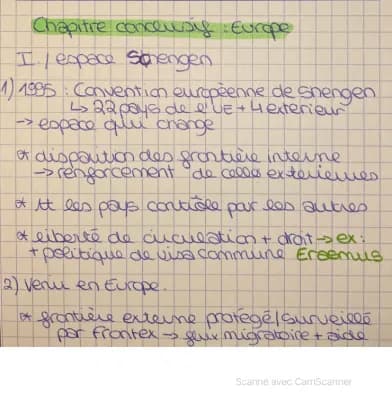 Chapitre conclusif : Europe
I./ espace Shengen
1) 1995 : Convention européenne de shengen
↳ 22 pays de l'UE + 4 exterieur
→ espace qui change
* disparition des frontière interne
→ renforcement de celles exterieures
* tt les pays contrôle par les autres
* liberté de circulation + droit → ex :
+ politique de visa commune Erasmus
2) Venir en Europe.
* frontière externe protegé/surveillé
par Frontex → flux migratoire + aide
Scanné avec CamScanner